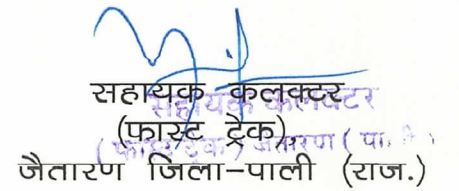 सहायक कलक्टर
(फास्ट ट्रैक)
जैतारण जिला-पाली (राज.)
सहायक कलक्टर
(फास्ट ट्रेक) जैतारण (पा